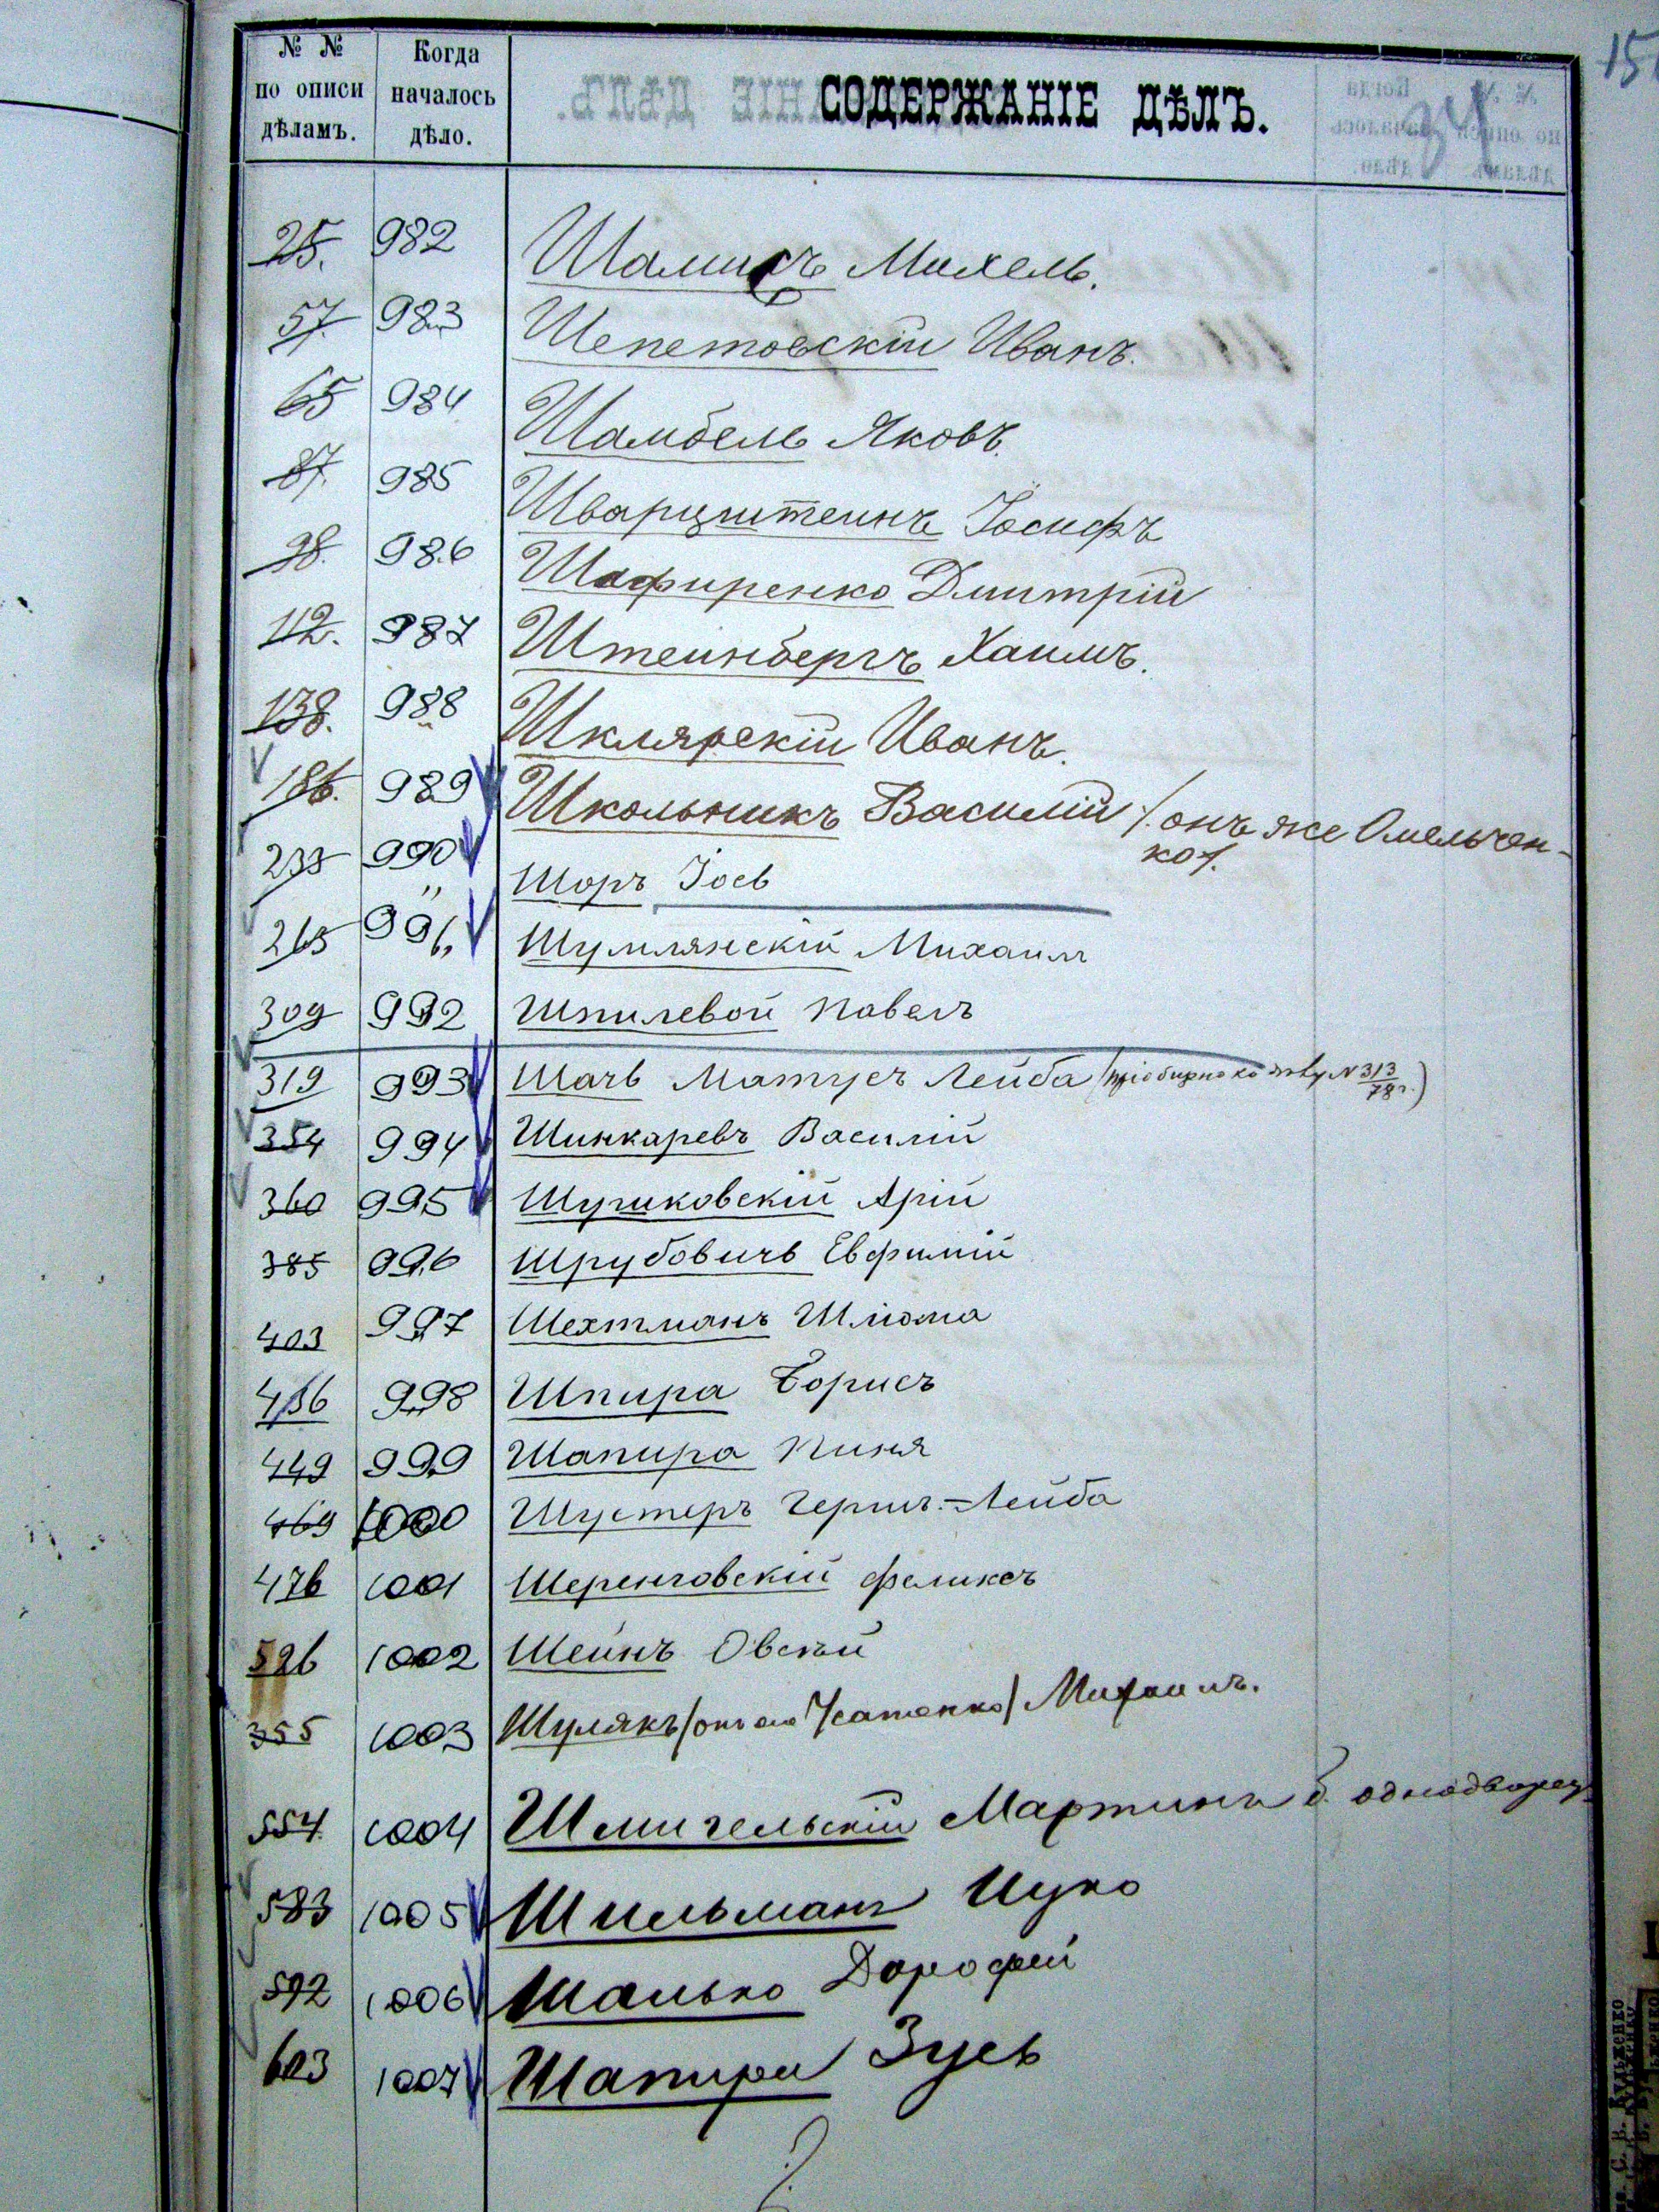 № №
по описи
дѣламъ.
Когда
началось
дѣло.
СОДЕРЖАНІЕ ДѢЛЪ.
25. 982 Михель.
57. 983 Шепетовскій Иванъ.
65 984 Шамбель Яковъ.
87. 985 Шварцштейнъ Іосифъ
98. 986 Шафиренко Дмитрій
112. 987 Штейнбергъ Хаимъ.
138. 988 Шклярскій Иванъ.
186. 989 Школьникъ Василій /: онъ же Омельчен-
ко :/.
233 990 Шоръ Іось
265 991 Шумлянскій Михаилъ
309 992 Шпилевой Павелъ
319 993 Шачъ Матусъ Лейба № 313/78 г.)
354 994 Шинкаревъ Василій
360 995 Арій
385 996 Шрубовичъ Евфимій
403 997 Шехтманъ Шлюма
436 998 Шпира Борисъ
449 999 Шапира Пиня
469 1000 Шустеръ Герш.-Лейба
476 1001 Шеренговскій Феликсъ
526 1002 Шейнъ Овсѣй
355 1003 Шулякъ /онъ же Усатенко/ Михаилъ.
554 1004 Шмигельскій Мартинъ б. однодворец.
583 1005 Шильманъ Ицко
592 1006 Шалько Дорофей
603 1007 Шапира Зусь